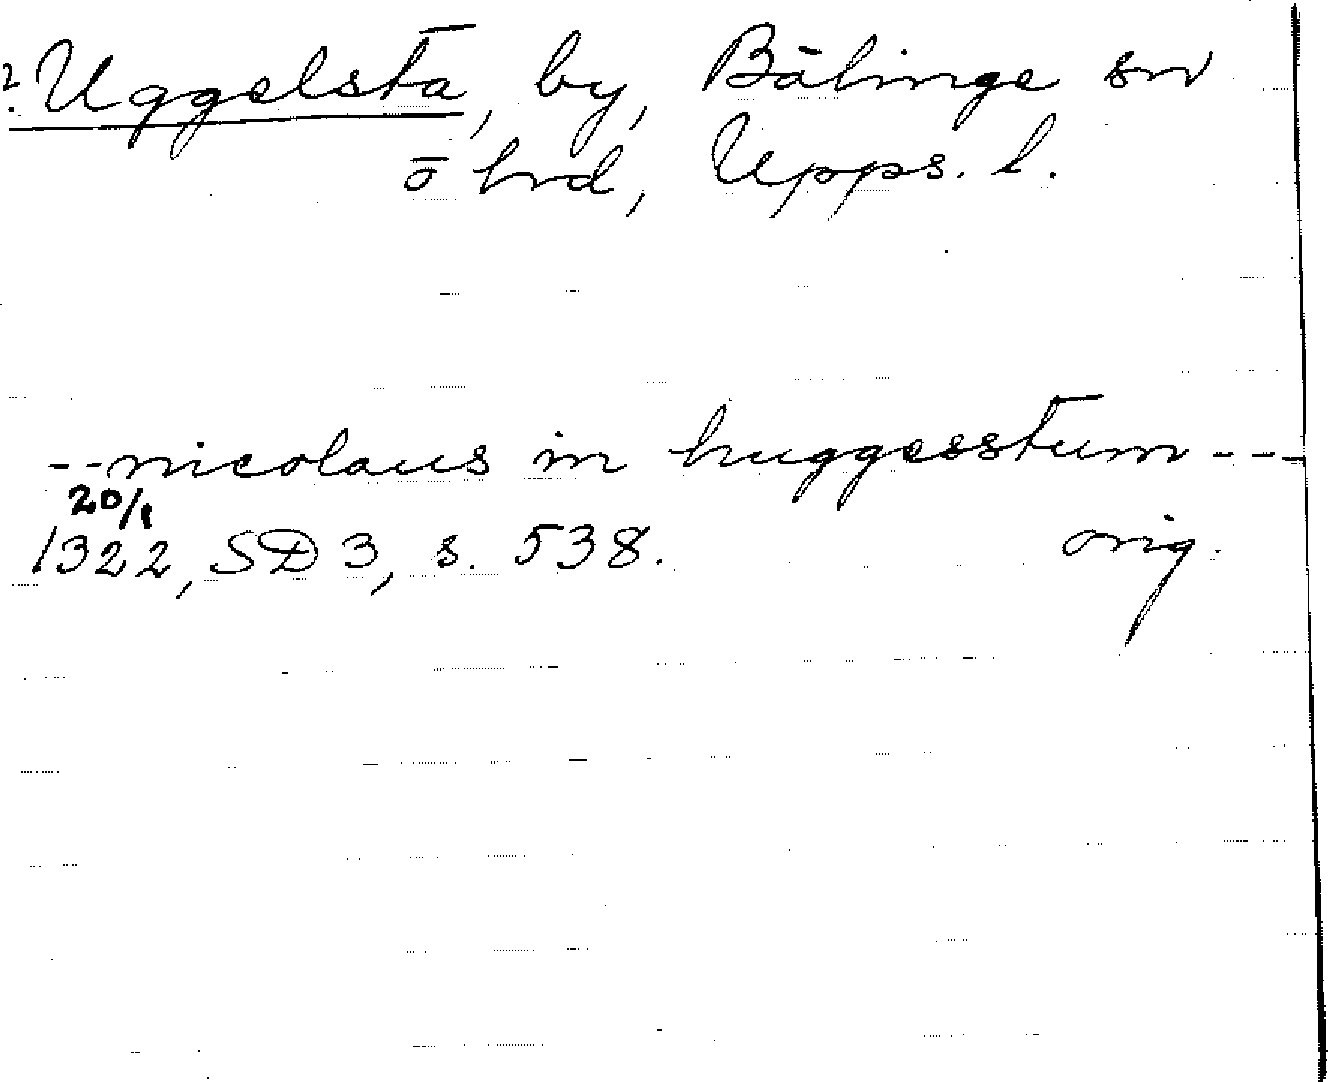 ?. Uggelsta, by, Bälinge sn
ö hrd, Upps. l.
--nicolaus in huggesstum---
20/1
1322, SD 3, s. 538. orig.